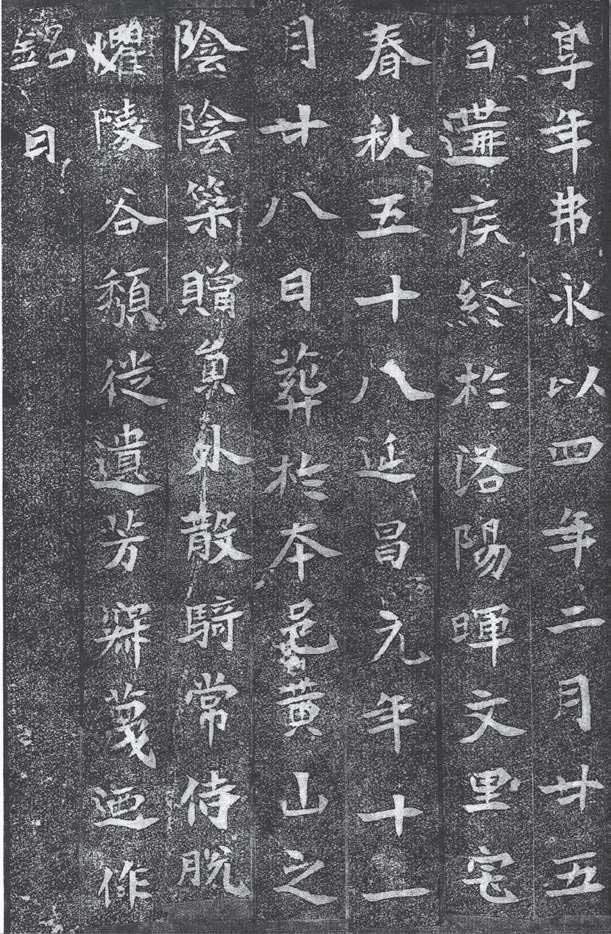 享年弗永以四年二月廿五
日遘疾終於洛陽暉文里宅
春秋五十八延昌元年十一
月廿八日葬於本邑黃山之
陰陰策贈員外散騎常侍脫
燿陵谷頹徙遺芳寂蔑迺作
銘曰